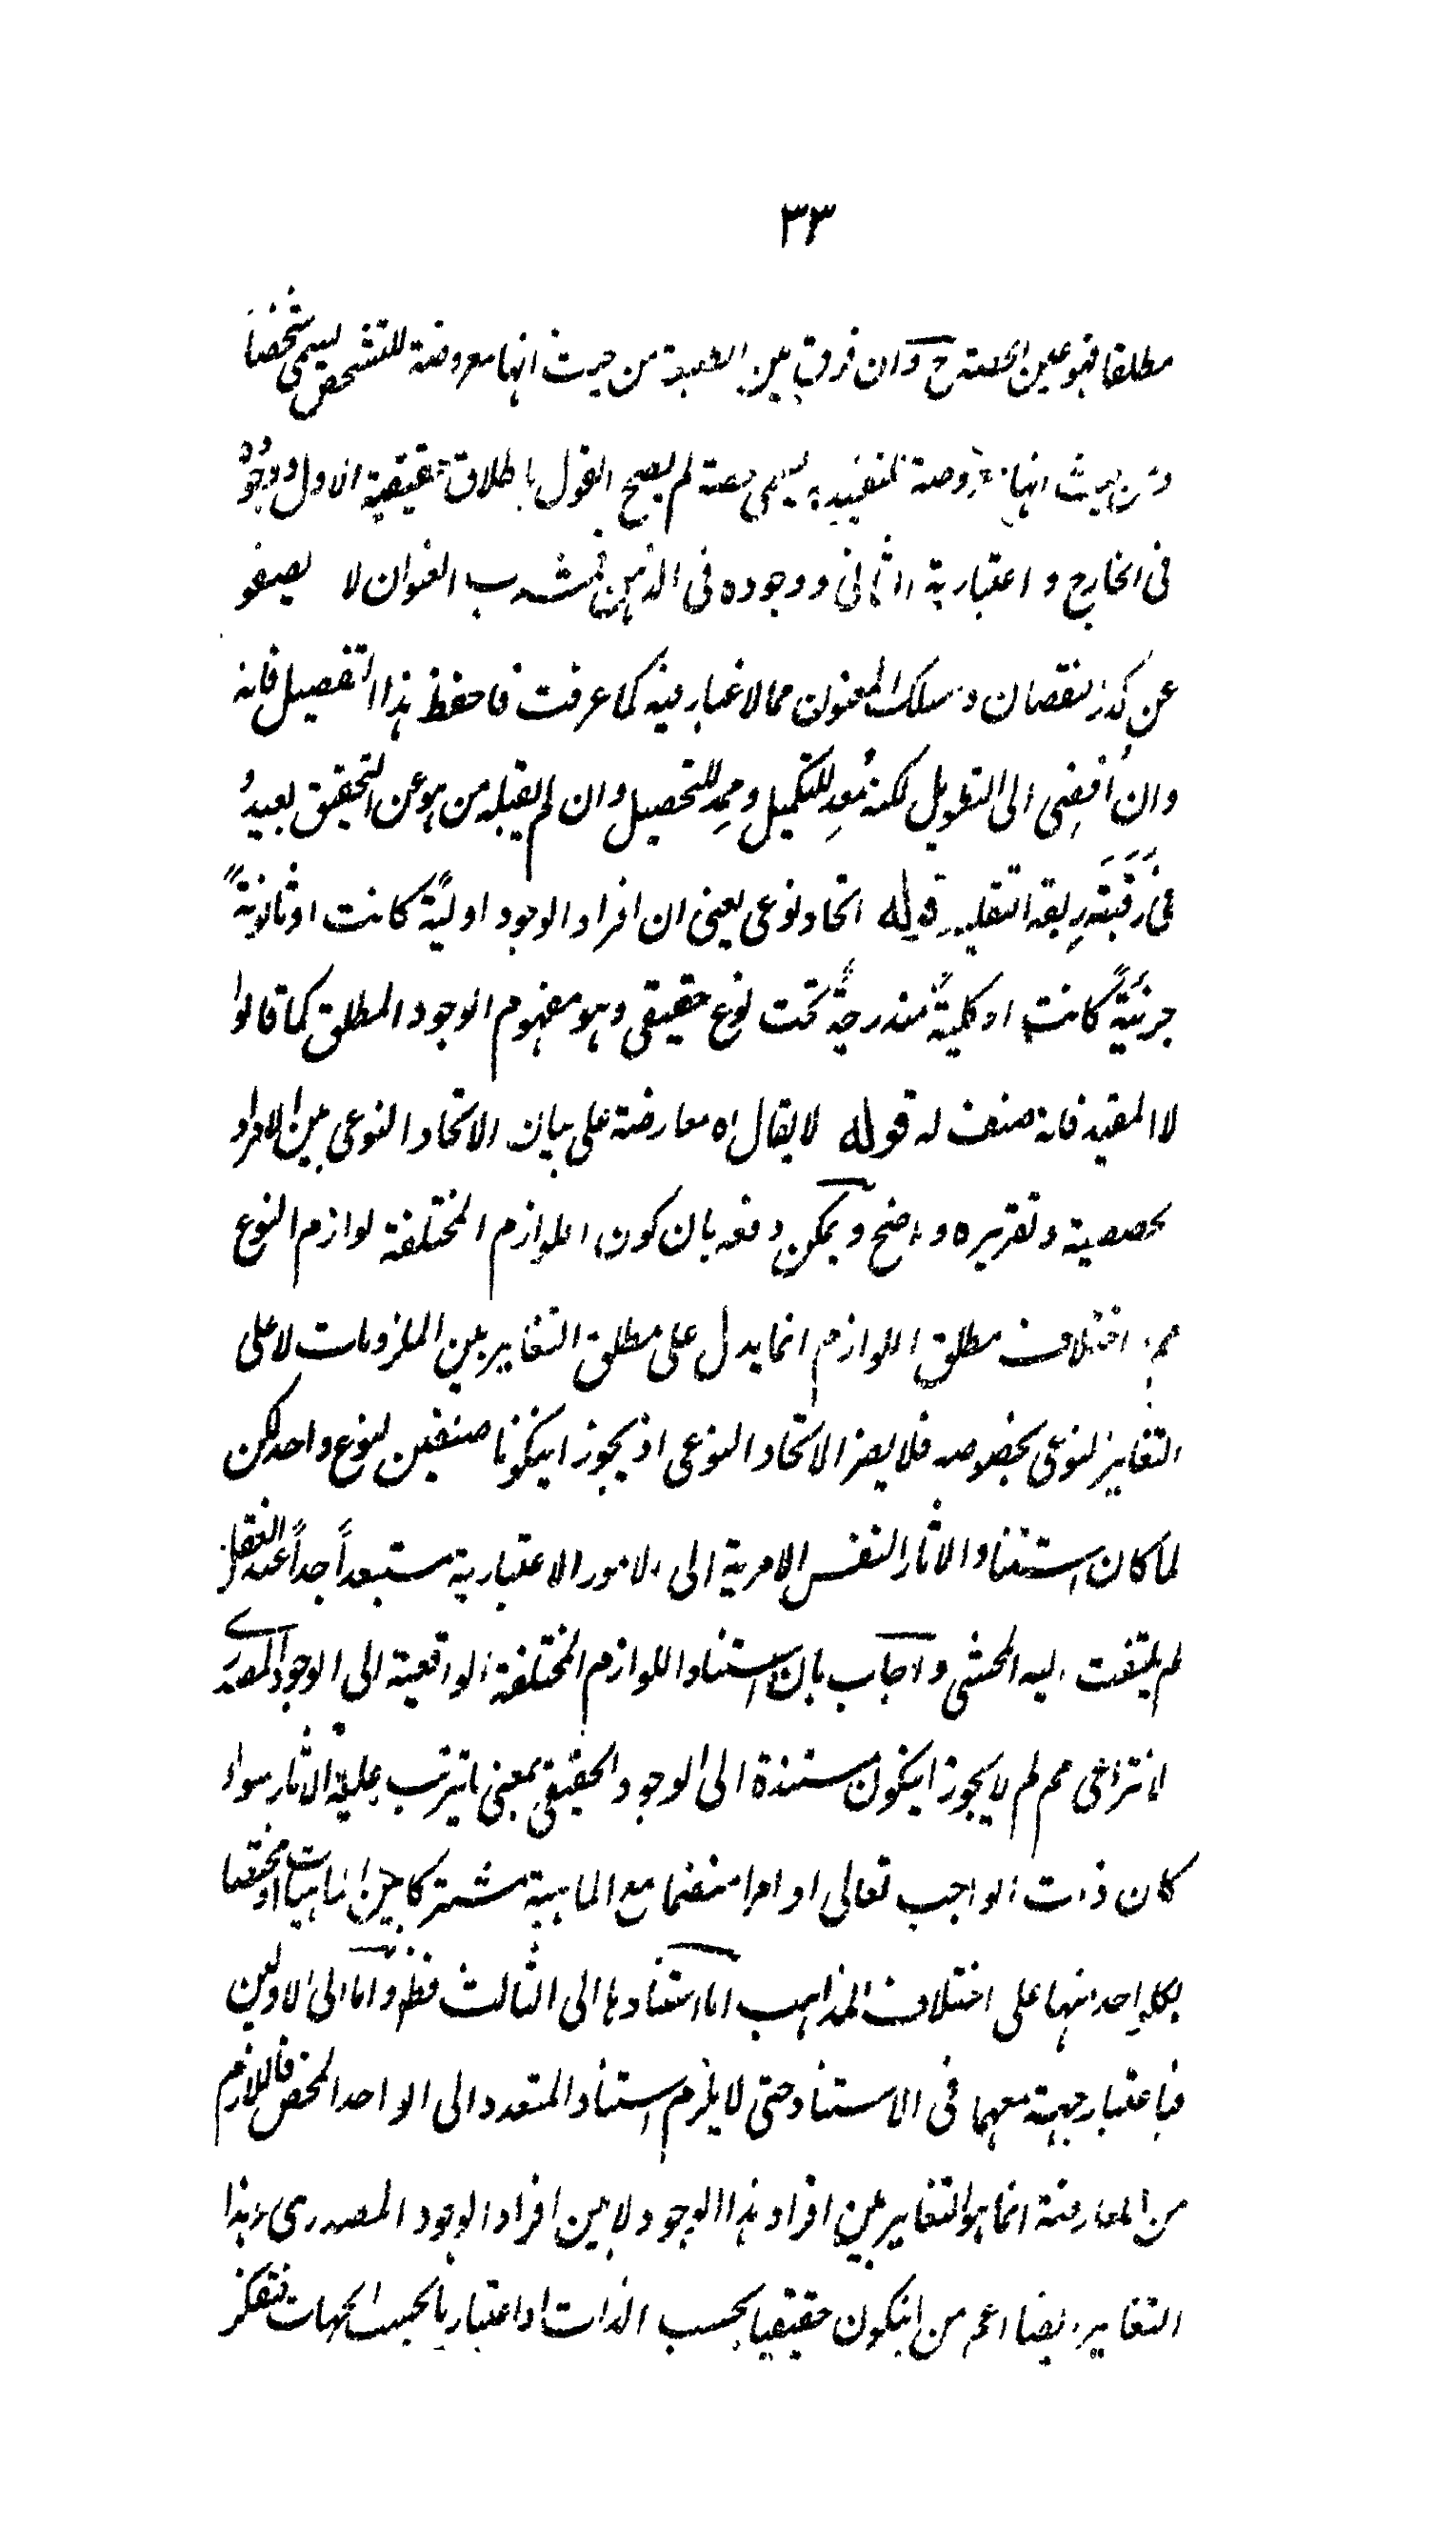 ٣٣
مطلقا فهو عين الحصة ح وان فرق بين الطبيعة من حيث انها معروضة للتشخص يسمى شخصا
ومن حيث انها معروضة للتقييد يسمى حصة لم يصح القول باطلاق حقيقية الاول ووجوده
فى الخارج و اعتبارية الثانى ووجوده فى الذهن فمشرب العنوان لا يصفو
عن كدر نقصان ومسلك المعنون مما لا غبار فيه كما عرفت فاحفظ هذا التفصيل فانه
وان اُفضِى الى التطويل لكنه مُعِد للتكميل وممِد للتحصيل وان لم يقبله من هو عن التحقيق بعيدُ
فى رَقَبَته رِبقة التقليد قوله اتحاد نوعى يعنى ان افراد الوجود اوليةً كانت او ثانويةً
جزئيةً كانت او كليةً مندرجةً تحت نوع حقيقى وهو مفهوم الوجود المطلق كما قالوا
لا المقيد فانه صنف له قوله لا يقال اه معارضة على بيان الاتحاد النوعى بين الافراد
لحصصية وتقريره واضح ويمكن دفعه بان كون اللوازم المختلفة لوازم النوع
مم اختلاف مطلق اللوازم انما يدل على مطلق التغاير بين الملزومات لا على
التغاير النوعى بخصوصه فلا يضر الاتحاد النوعى اذ يجوز ايكونا صنفين لنوع واحد لكن
لما كان استناد الاثار النفس الامرية الى الامور الاعتبارية مستبعداً جداً عند العقل
لم يلتفت اليه المحشى واجاب بان استناد اللوازم المختلفة الواقعية الى الوجود المصدرى
الانتزاعى مم لم لا يجوز ايكون مستندة الى الوجود الحقيقى بمعنى ما يترتب عليه الاثار سواء
كان ذات الواجب تعالى او امرا منضما مع الماهية مشتركا بين الماهيات او مختصا
بكل واحد منها على اختلاف المذاهب اما استنادها الى الثالث فظ واما الى الاولين
فباعتبار جهة معهما فى الاستناد حتى لا يلزم استناد المتعدد الى الواحد المحض فاللازم
من المعارضة انما هو التغاير بين افراد هذا الوجود لا بين افراد الوجود المصدرى وهذا
التغاير ايضا اعم من ايكون حقيقيا بحسب الذات او اعتباريا بحسب الجهات فتفكر